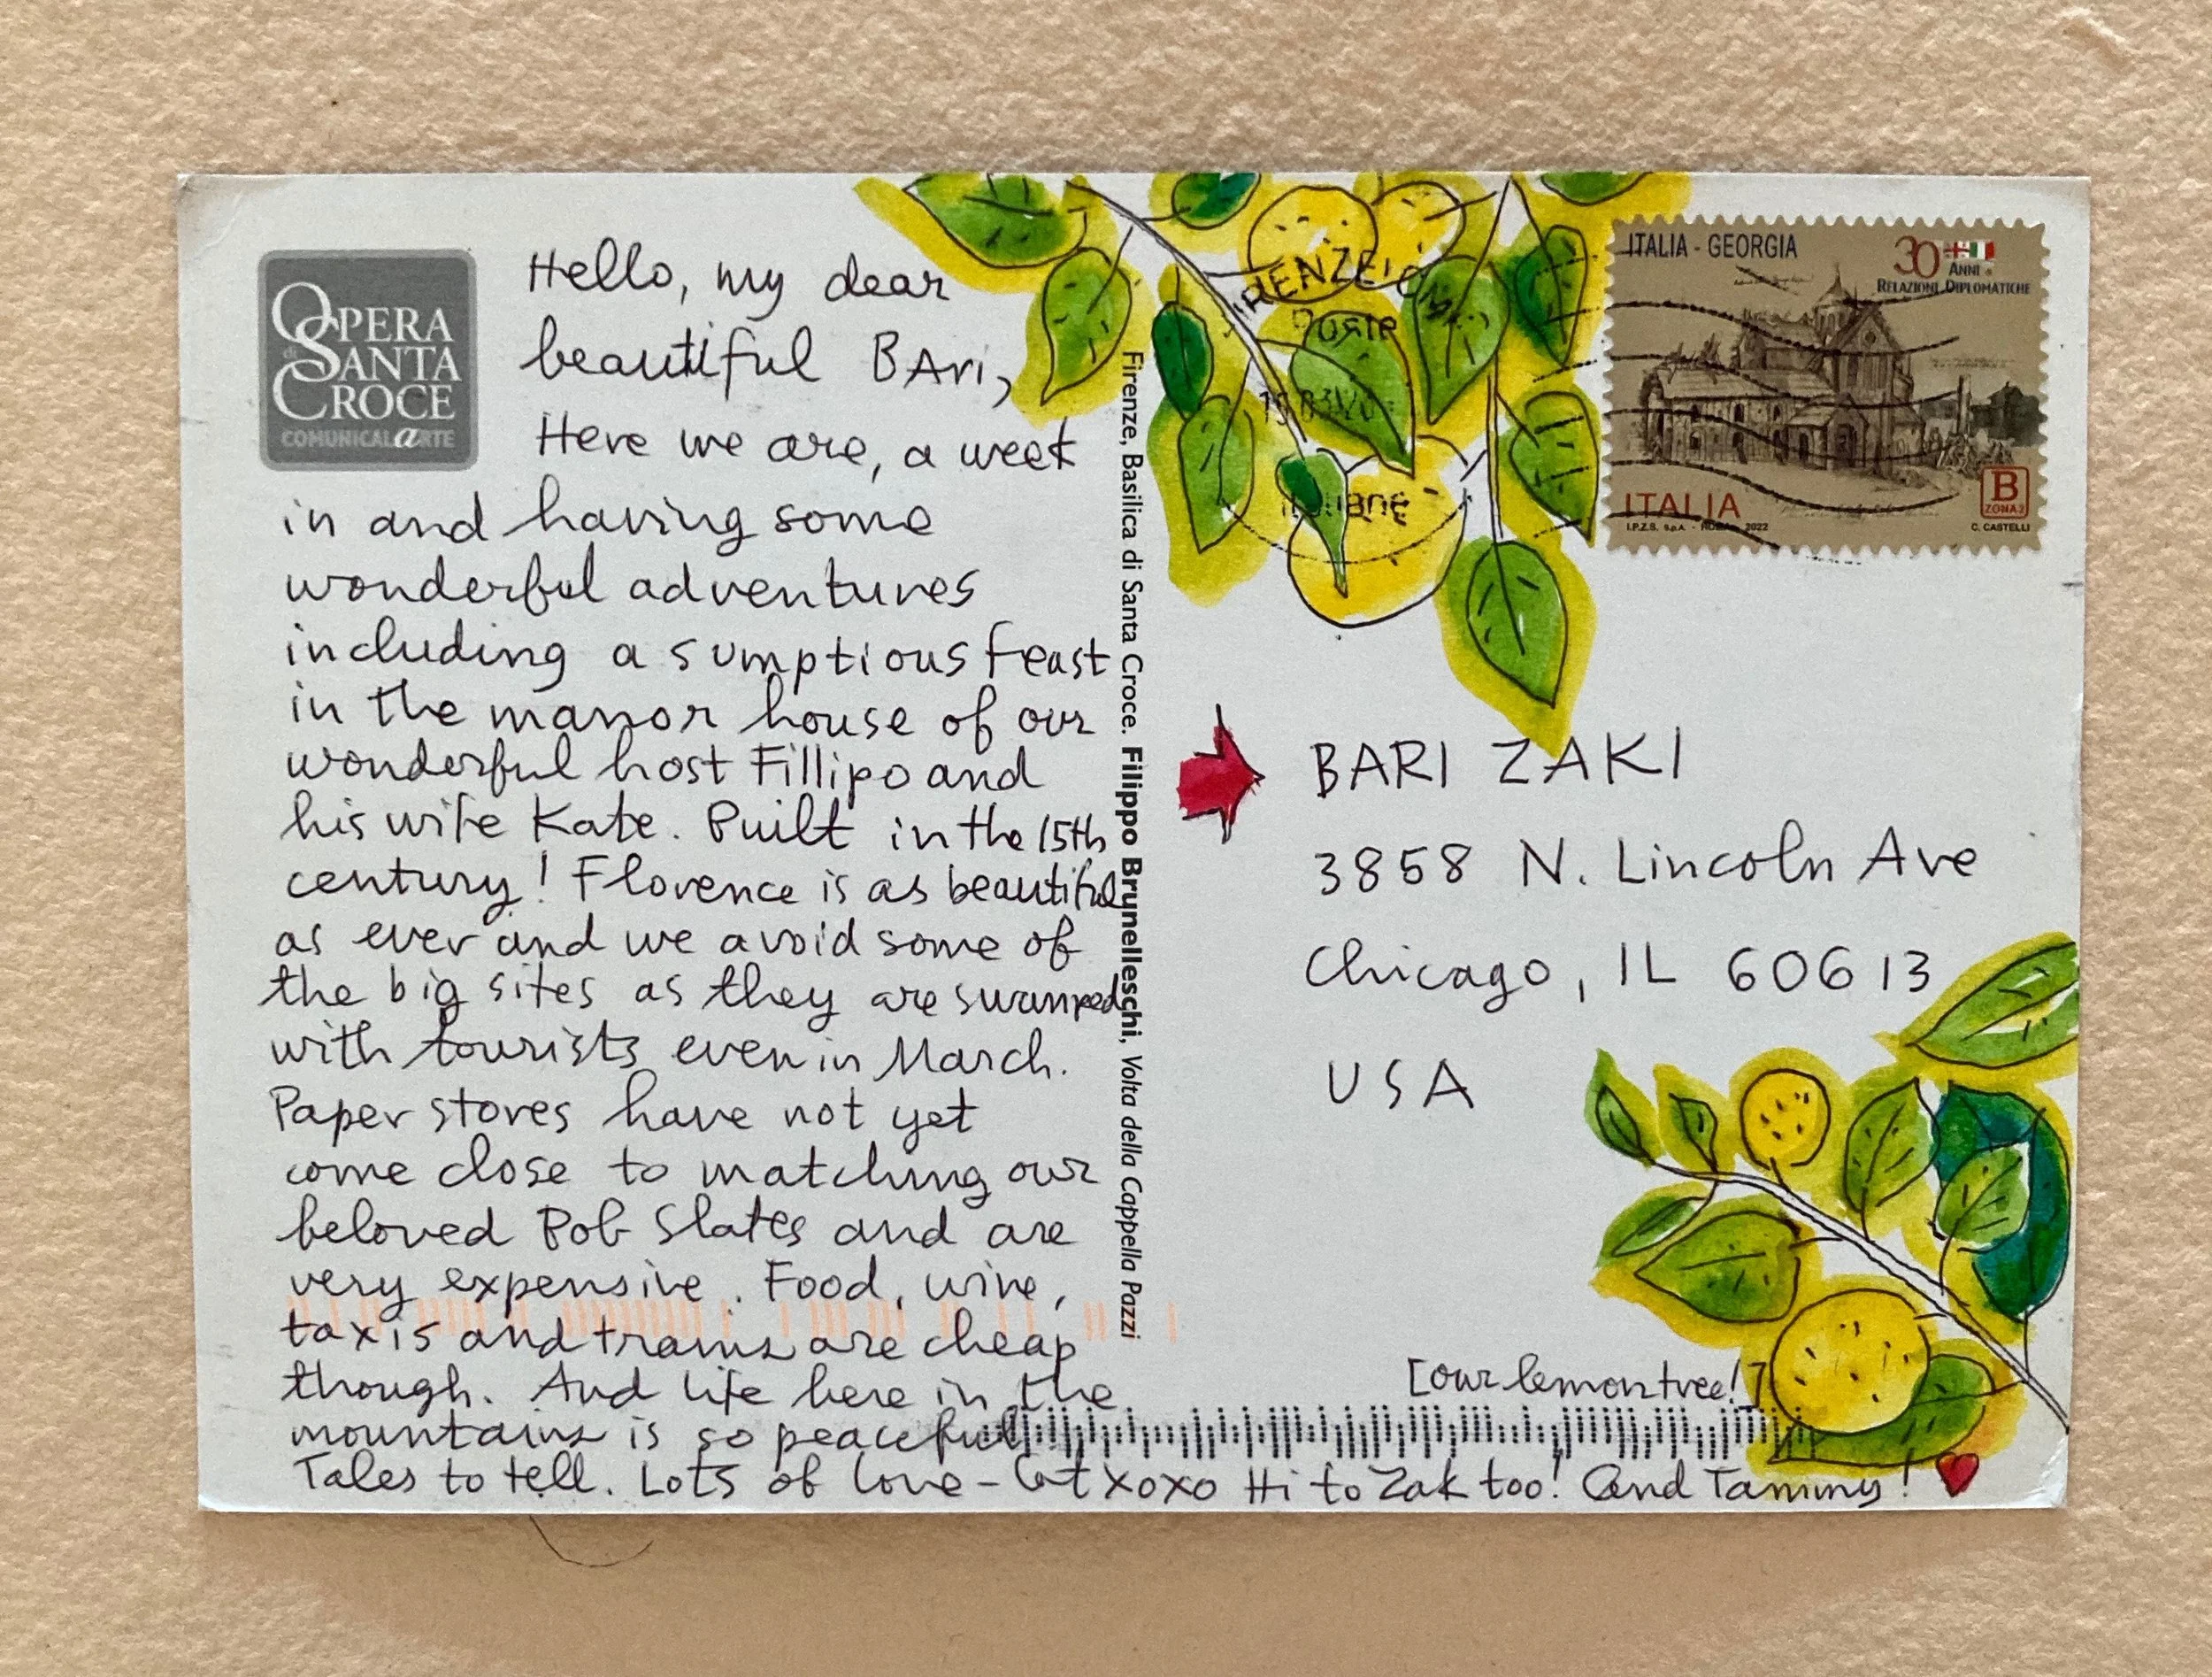 OPERA
di SANTA
CROCE
COMUNICALARTE
Hello, my dear
beautiful BAri,
Here we are, a week
in and having some
wonderful adventures
including a sumptious feast
in the manor house of our
wonderful host Fillipo and
his wife Kate. Built in the 15th
century! Florence is as beautiful
as ever and we avoid some of
the big sites as they are swamped
with tourists even in March.
Paper stores have not yet
come close to matching our
beloved Bob Slates and are
very expensive. Food, wine,
taxis and trams are cheap
though. And life here in the
mountains is so peaceful
Tales to tell. Lots of love - xoxo Hi to Zak too! And Tammy!
Firenze, Basilica di Santa Croce. Filippo Brunelleschi, Volta della Cappella Pazzi
Poste
italiane
ITALIA - GEORGIA
30 ANNI di
RELAZIONI DIPLOMATICHE
ITALIA
I.P.Z.S. S.p.A. - ROMA - 2022
B
ZONA 2
C. CASTELLI
BARI ZAKI
3858 N. Lincoln Ave
Chicago, IL 60613
USA
[our lemon tree!]